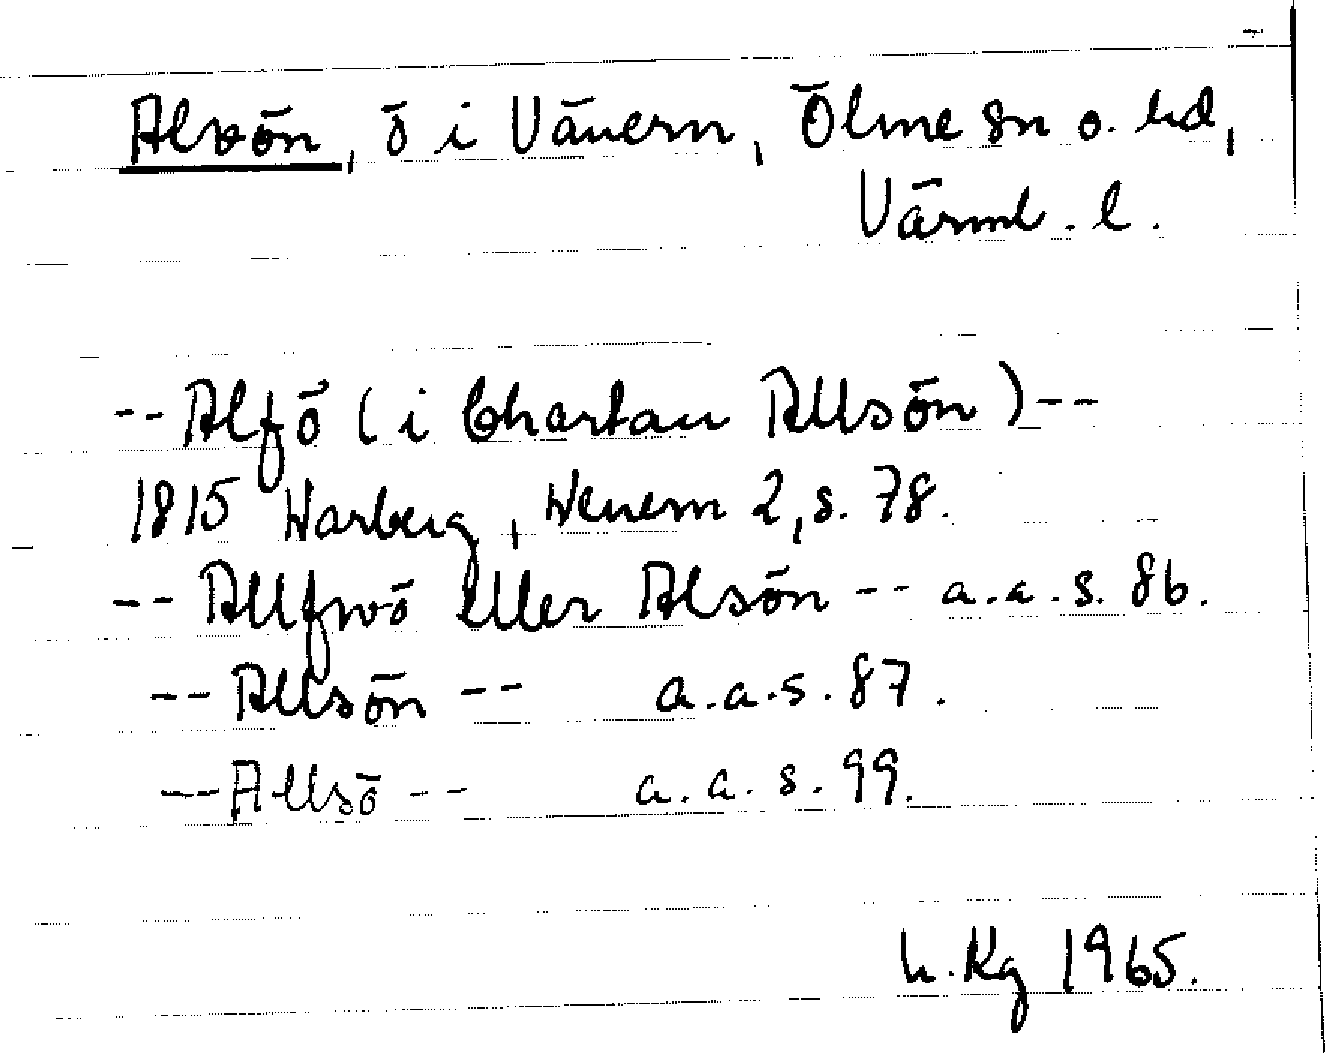 Alsön, ö i Vänern, Ölme sn o. hd,
Värml. l.
-- Alfö (i Chartan Allsön) --
1815 Warberg, Wenern 2, s. 78.
-- Allfwö eller Alsön -- a.a.s. 86.
-- Allsön -- a.a.s. 87.
-- Allsö -- a.a.s. 99.
h. Kg 1965.